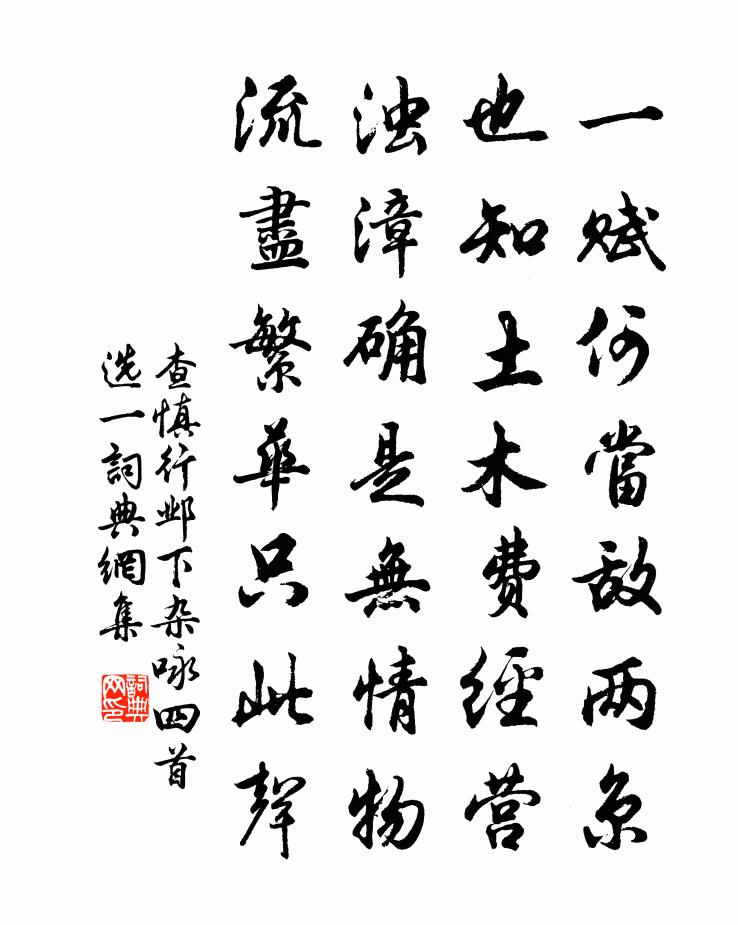 一赋何當敌两京
也知土木费經营
浊漳确是無情物
流盡繁華只此聲
查慎行邺下杂咏四首
选一詞典網集
詞典网印